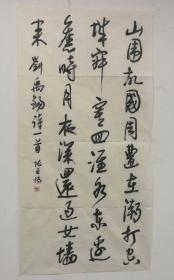 山圍故國周遭在潮打空
城寂寞回淮水东邊
舊時月夜深還過女墻
来 劉禹錫詩一首